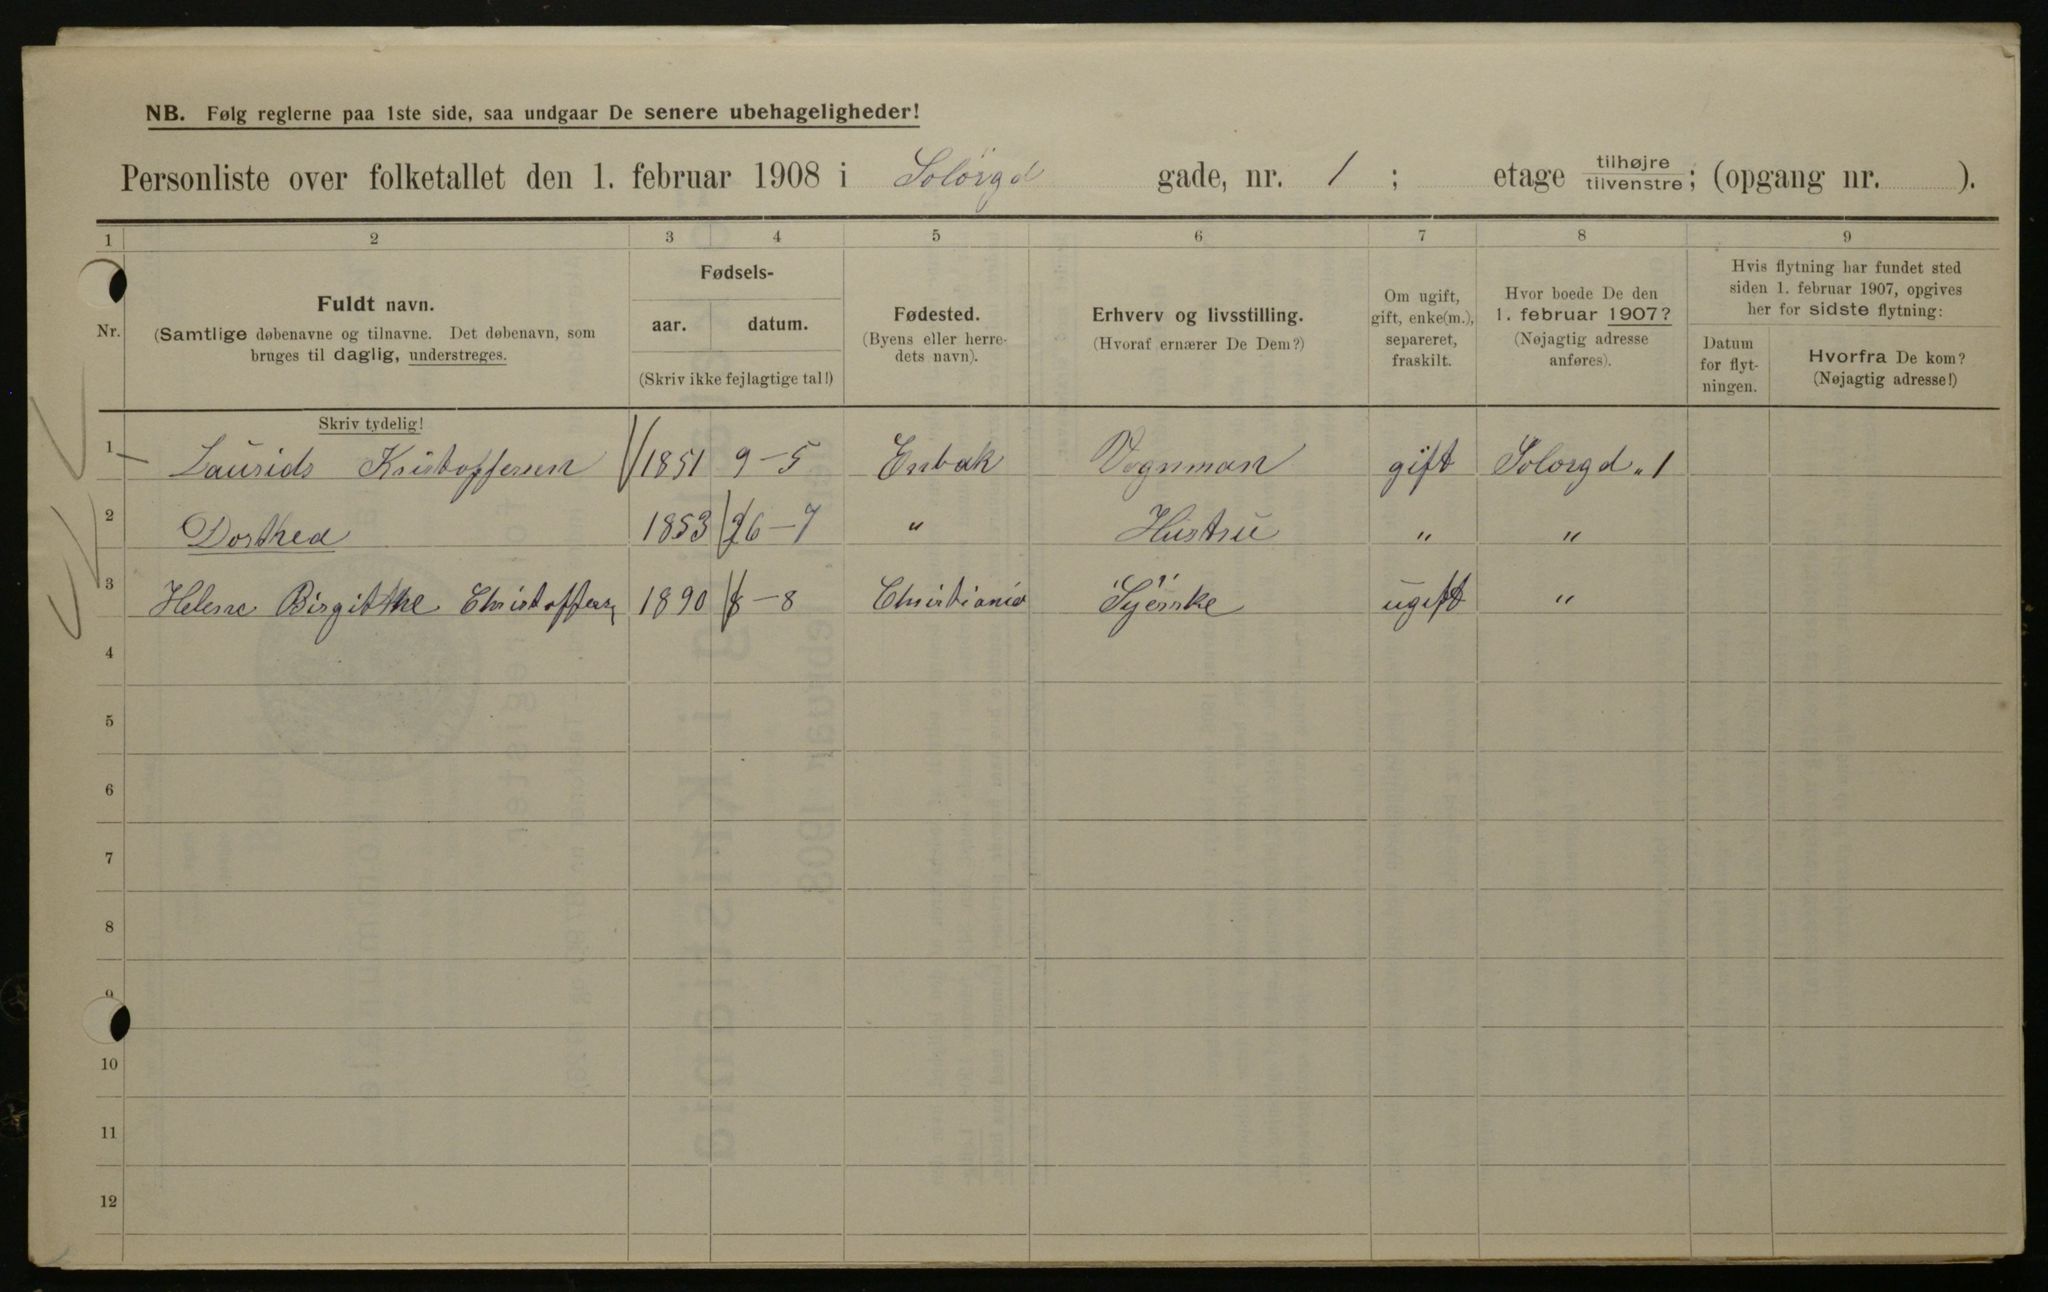 NB. Følg reglerne paa 1ste side, saa undgaar De senere ubehageligheder!
Personliste over folketallet den 1. februar 1908 i Solörgd gade, nr. 1 ; etage tilhøjre/tilvenstre; (opgang nr. ).
1 2 3 4 5 6 7 8 9
Nr.
Fuldt navn.
(Samtlige døbenavne og tilnavne. Det døbenavn, som
bruges til daglig, understreges.
Skriv tydelig!
Fødsels-
aar. datum.
(Skriv ikke fejlagtige tal!)
Fødested.
(Byens eller herre-
dets navn).
Erhverv og livsstilling.
(Hvoraf ernærer De Dem?)
Om ugift,
gift, enke(m.),
separeret,
fraskilt.
Hvor boede De den
1. februar 1907?
(Nøjagtig adresse
anføres).
Hvis flytning har fundet sted
siden 1. februar 1907, opgives
her for sidste flytning:
Datum
for flyt-
ningen.
Hvorfra De kom?
(Nøjagtig adresse!)
1 Laurids Kristoffersen 1851 9-5 Enbak Vognman gift Solorgd „ 1
2 Dorthea 1853 26-7 „ Hustru „ „
3 Helene Birgitthe Christoffers 1890 8-8 Christiania Syerske ugift „
4
5
6
7
8
9
10
11
12